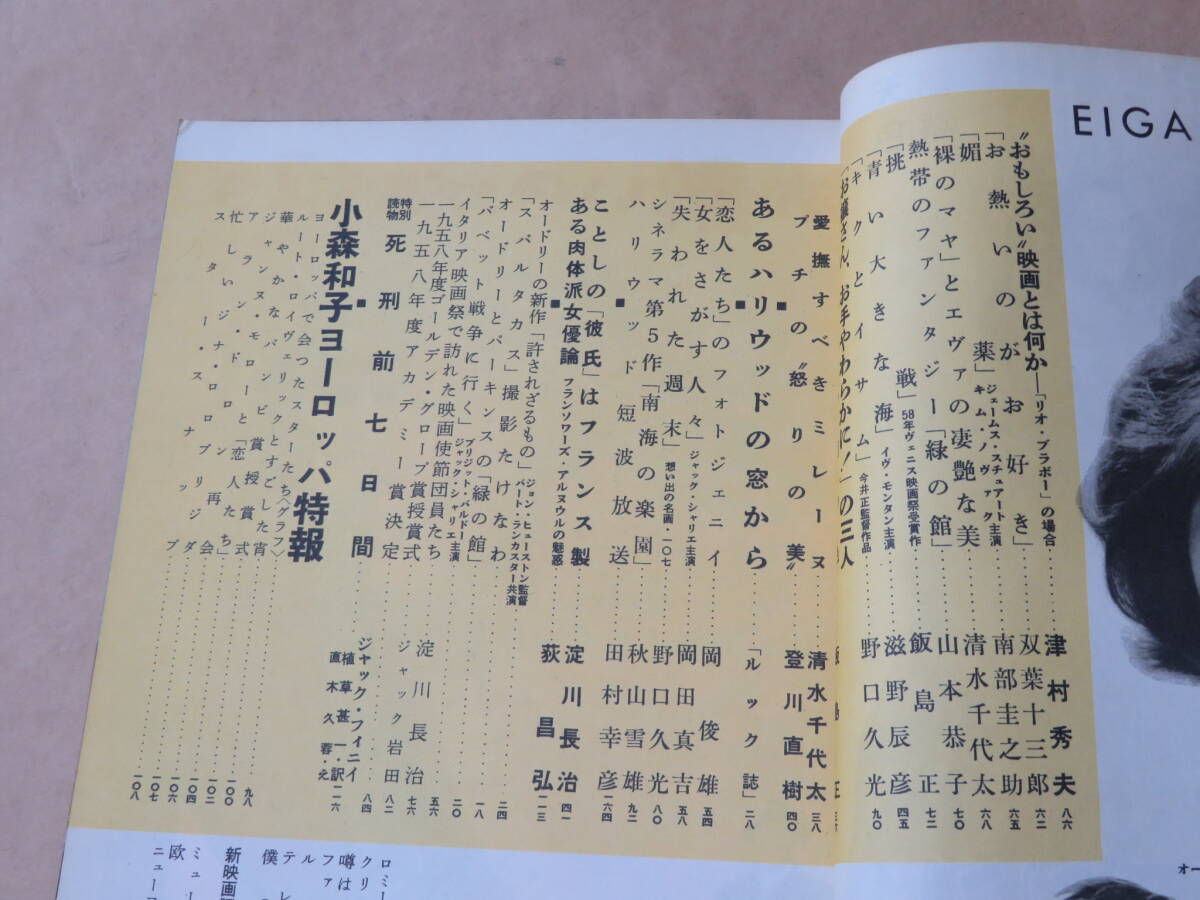 EIGA
“おもしろい”映画とは何か―「リオ・ブラボー」の場合 津村秀夫 八六
「お熱いのがお好き」 双葉十三郎 六二
「媚薬」 ジェームス・スチュアート キム・ノヴァク 主演 南部圭之助 六五
「裸のマヤ」とエヴァの凄艶な美 清水千代太 六八
熱帯のファンタジー「緑の館」 山本恭子 七〇
「挑戦」 58年ヴェニス映画祭受賞作 飯島正 七二
「青い大きな海」 イヴ・モンタン主演 滋野辰彦 四五
「キクとイサム」 今井正監督作品 野口久光 九〇
「お嬢さん、お手やわらかに!」の三人
愛撫すべきミレーヌ 清水千代太 三八
ブチの“怒りの美” 登川直樹 四〇
■あるハリウッドの窓から 「ルック誌」 二八
「恋人たち」のフォトジェニイ 岡俊雄 五四
「女をさがす人々」 ジャック・シャリエ主演 岡田真吉 五八
「失われた週末」 想い出の名画・一〇七 野口久光 八〇
シネラマ第5作「南海の楽園」 秋山雪雄 九二
ハリウッド短波放送 田村幸彦 一六四
■ことしの「彼氏」はフランス製 淀川長治 四一
ある肉体派女優論 フランソワーズ・アルヌウルの魅惑 荻昌弘 一二三
■オードリーの新作「許されざるもの」 ジョン・ヒューストン監督 バート・ランカスター共演 二四
「スパルタカス」撮影たけなわ
オードリーとパーキンスの「緑の館」 一八
「バベット戦争に行く」 ブリジット・バルドー ジャック・シャリエ 主演 二〇
イタリア映画祭で訪れた映画使節団員たち 五六
一九五八年度ゴールデン・グローブ賞授賞式 淀川長治 七六
一九五八年度アカデミー賞決定 ジャック岩田 八二
特別読物 死刑前七日間 ジャック・フィニイ 八四
植草甚一・訳 一二六
直木久蓉・え
■小森和子ヨーロッパ特報
ヨーロッパで会ったスターたち〈グラフ〉 九八
ルート・ロイヴェリックとすごした宵 一〇〇
華やかなバンビ賞授賞式 一〇二
ジャンヌ・モローと「恋人たち」 一〇四
アラン・ドロンに再会 一〇六
忙しいジーナ・ロロブリジダ 一〇七
スター・スナップ 一〇八
新映画